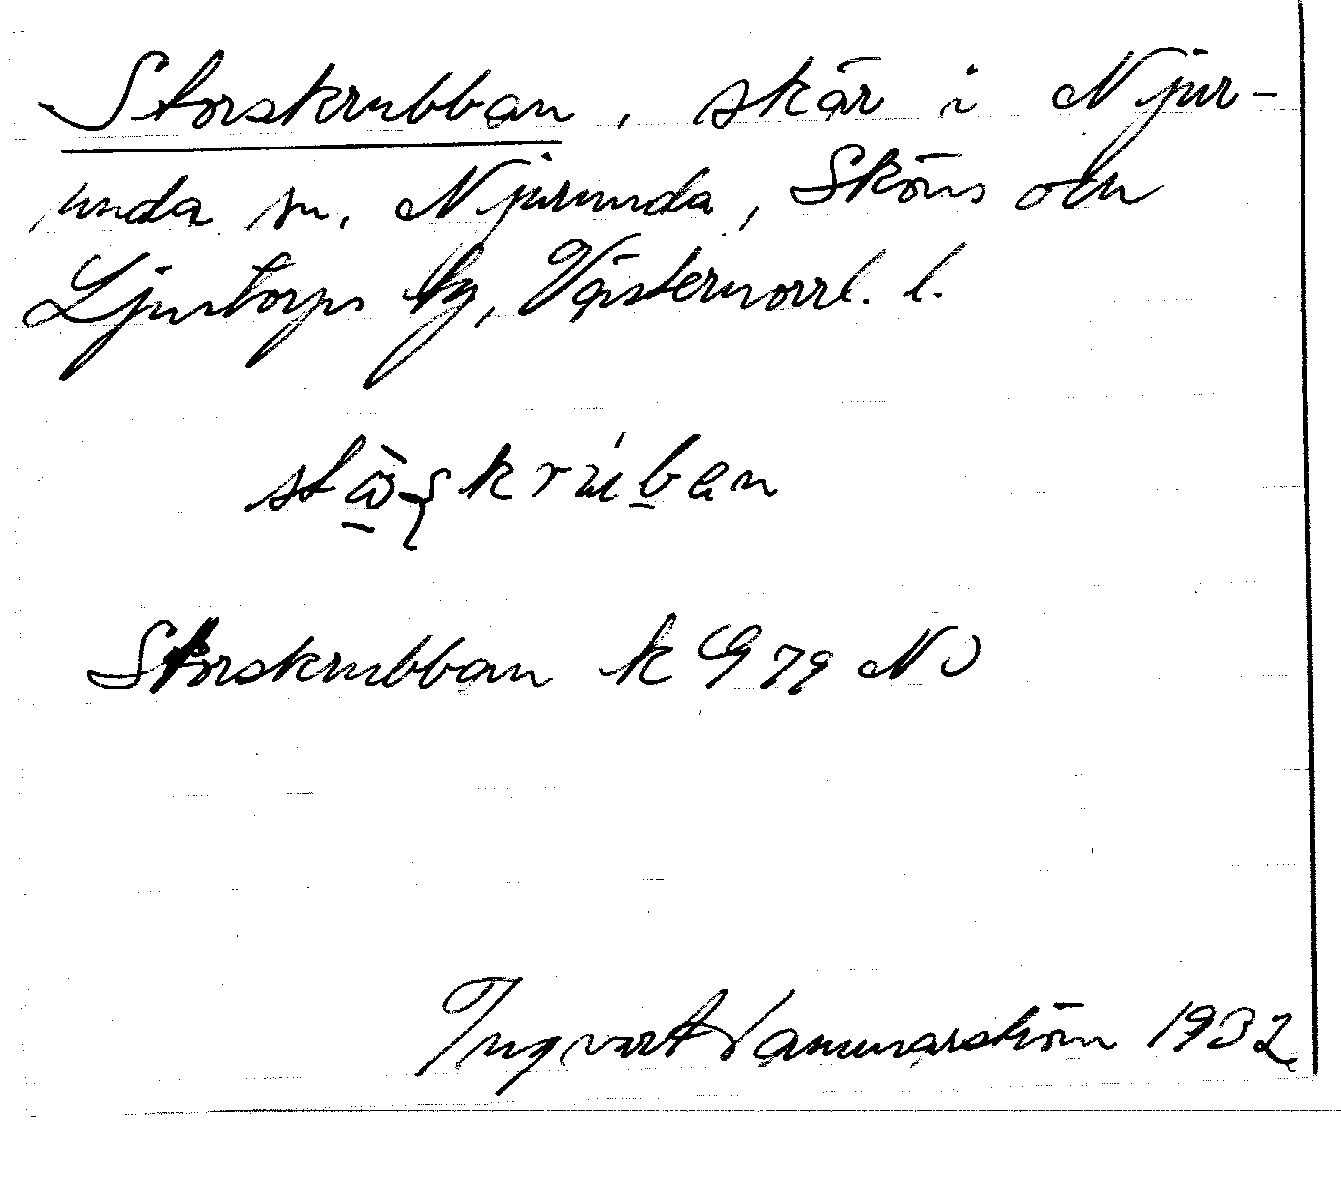 Storskrubban, skär i Njur-
unda sn. Njurunda, Sköns och
Ljustorps tg, Västernorrl. l.
Storskrubban k G 79 NO
Ingvart Hammarström 1932